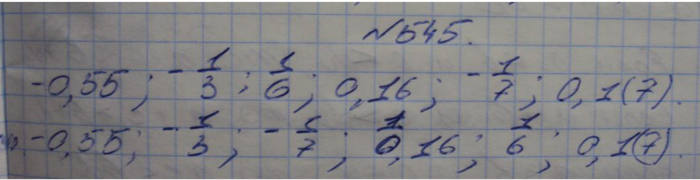 №545.
-0,55; -1/3; 1/6; 0,16; -1/7; 0,1(7).
-0,55; -1/3; -1/7; 0,16; 1/6; 0,1(7).